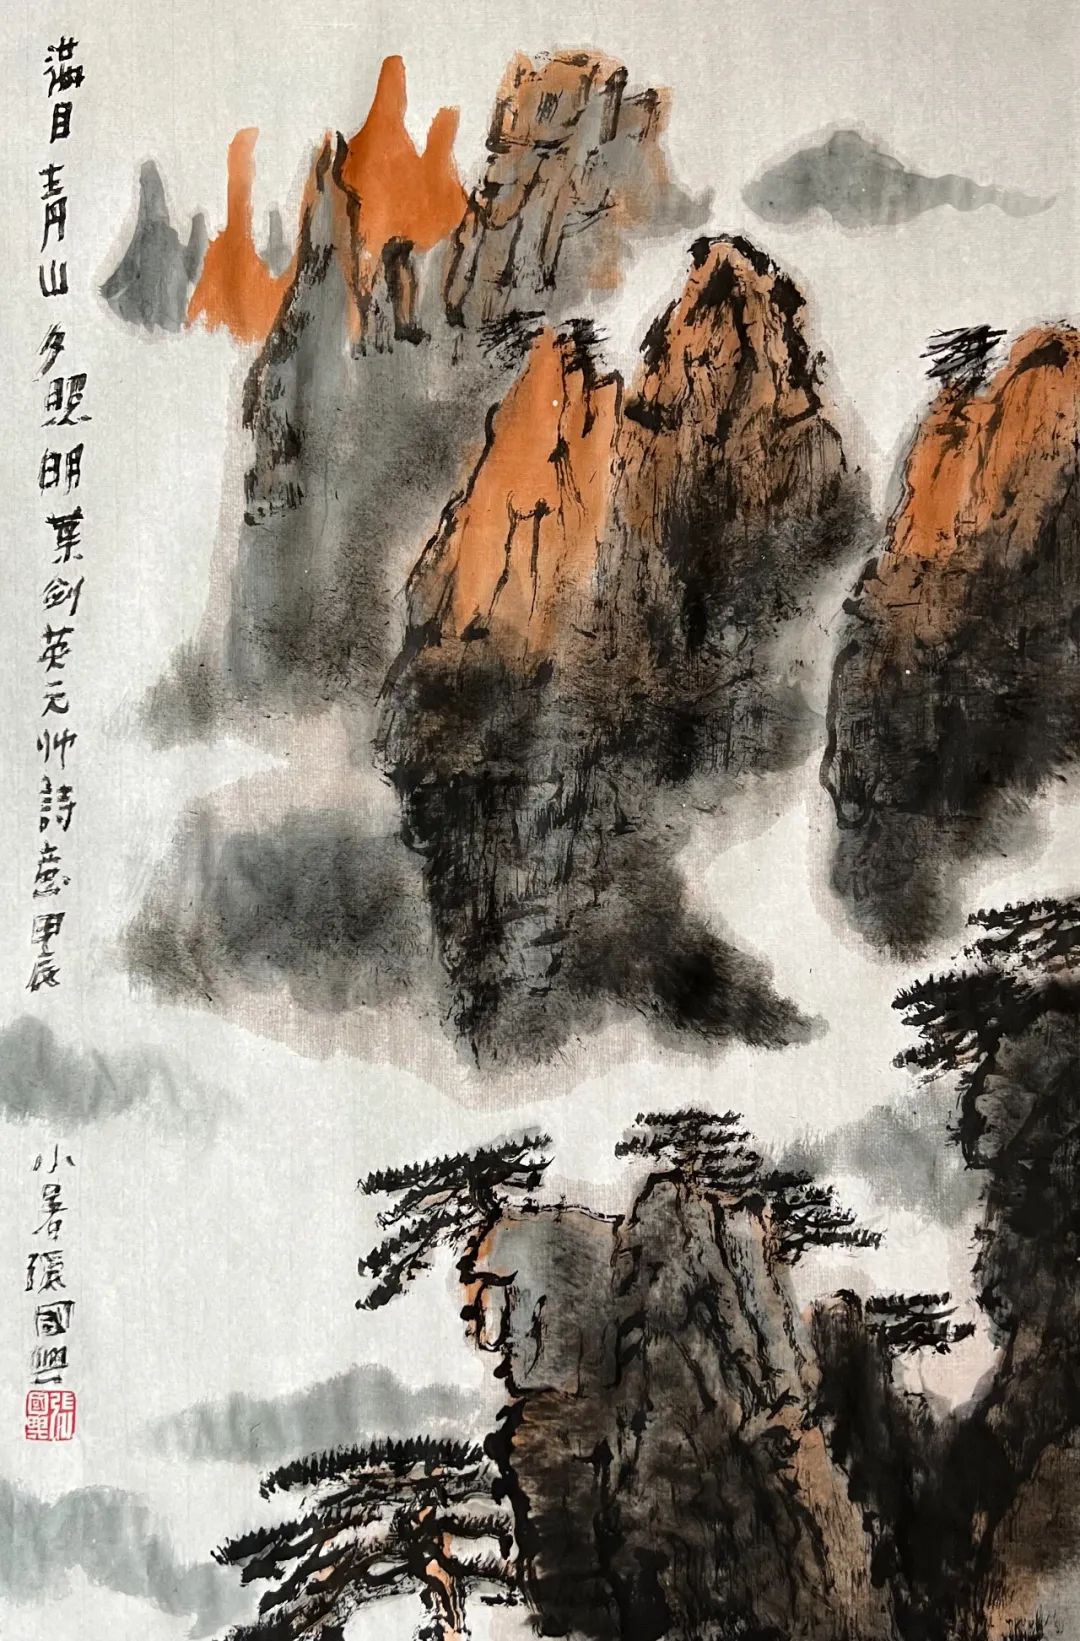 满目青山夕照明葉剑英元帅詩意甲辰
小暑張國興
張國興